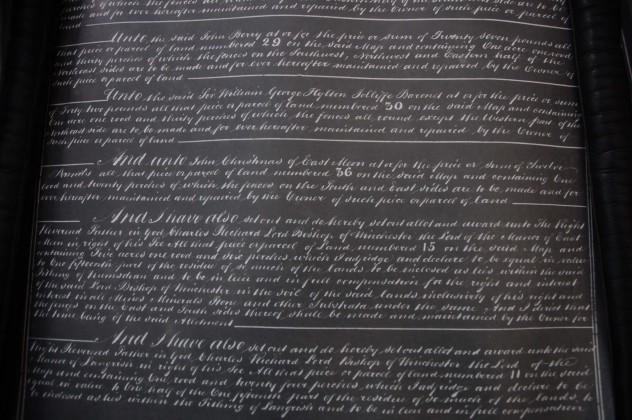 of which the fences all round
made and for ever hereafter maintained and repaired by the Owner of such piece or parcel of
land
Unto the said John Berry at or for the price or sum of Twenty Seven pounds all
that piece or parcel of land numbered 29 on the said Map and containing One acre one rood
and thirty perches of which the fences on the Southwest, Northwest and Eastern half of the
Northeast sides are to be made and for ever hereafter maintained and repaired by the Owner of
such piece or parcel of land
Unto the said Sir William George Hylton Jolliffe Baronet at or for the price or sum
of Fifty two pounds all that piece or parcel of land numbered 30 on the said Map and containing
One acre one rood and thirty perches of which the fences all round except the Western part of the
Northeast side are to be made and for ever hereafter maintained and repaired by the Owner of
such piece or parcel of land
And unto John Christmas of East Meon at or for the price or sum of Twelve
Pounds all that piece or parcel of land numbered 36 on the said Map and containing One
rood and twenty perches of which the fences on the South and East sides are to be made and for
ever hereafter maintained and repaired by the Owner of such piece or parcel of land
And I have also set out and do hereby set out allot and award unto The Right
Reverend Father in God Charles Richard Lord Bishop of Winchester the Lord of the Manor of East
Meon in right of his See All that piece or parcel of Land numbered 15 on the said Map and
containing Five acres one rood and six perches which I adjudge and declare to be equal in value
to One fifteenth part of the residue of so much of the lands to be inclosed as lies within the said
Tithing of and to be in lieu and in full compensation for the right and interest
of the said Lord Bishop of Winchester in the soil of the said lands inclusively of his right and
interest in all Mines Minerals Stone and other Substrata under the same And I direct that
the fences on the East and South sides thereof shall be made and maintained by the Owner for
the time being of the said Allotment
And I have also set out and do hereby set out allot and award unto the said
Right Reverend Father in God Charles Richard Lord Bishop of Winchester the Lord of the
Manor of Langrish in right of his See All that piece or parcel of land numbered 11 on the said
Map and containing One rood and twenty four perches which I adjudge and declare to be
equal in value to One half of the One fifteenth part of the residue of so much of the lands to
be inclosed as lies within the Tithing of Langrish and to be in lieu and in full compensation